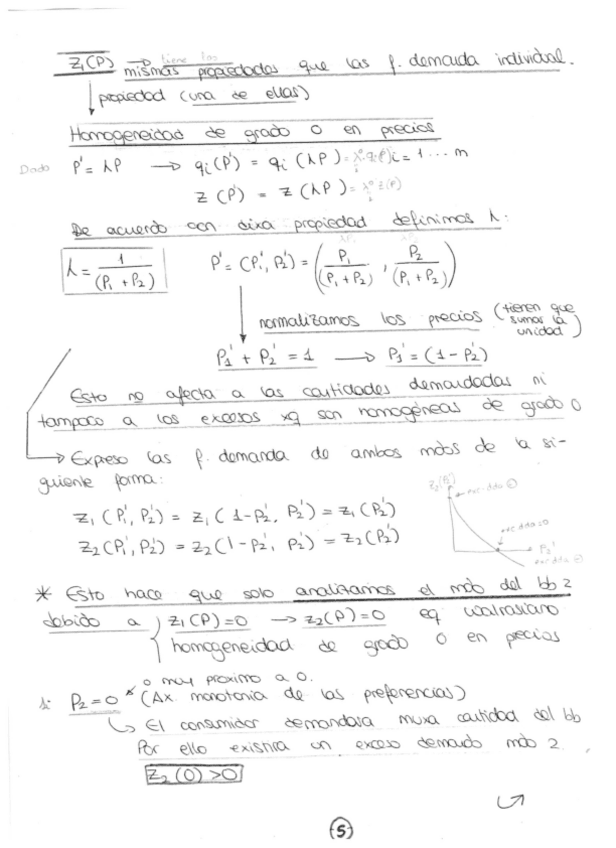 Z₁(P) → tiene las mismas propiedades que las f. demanda individual.
propiedad (una de ellas)
Homogeneidad de grado 0 en precios
Dado P' = λP → qi(P') = qi(λP) = λ⁰·qi(P) i = 1 ... m
Z(P') = Z(λP) = λ⁰ Z(P)
De acuerdo con dixa propiedad definimos λ:
λ = 1/(P₁ + P₂) P' = (P₁', P₂') = (P₁/(P₁ + P₂), P₂/(P₁ + P₂))
normalizamos los precios (tienen que sumar la unidad)
P₁' + P₂' = 1 → P₁' = (1 - P₂')
Esto no afecta a las cantidades demandadas ni
tampoco a los excesos xq son homogéneas de grado 0
→ Expreso las f. demanda de ambos mdos de la si-
guiente forma:
Z₁(P₁', P₂') = Z₁(1-P₂', P₂') = Z₁(P₂')
Z₂(P₁', P₂') = Z₂(1-P₂', P₂') = Z₂(P₂')
Z₂(P₂')
exc dda = 0
P₂'
exc dda ⊖
* Esto hace que solo analizamos el mdo del bb 2
debido a { Z₁(P)=0 → Z₂(P)=0 eq walrasiano
homogeneidad de grado 0 en precios
o muy proximo a 0.
Si P₂=0 (Ax. monotonia de las preferencias)
↳ El consumidor demandara muxa cantidad del bb
Por ello existira un exceso demanda mdo 2.
Z₂(0) > 0
5